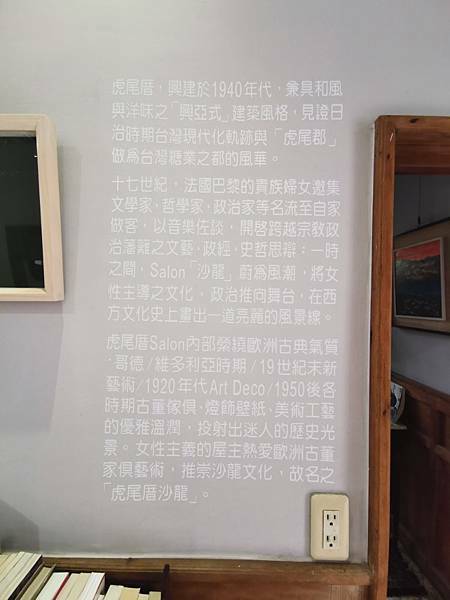 虎尾厝，興建於1940年代，兼具和風
與洋味之「興亞式」建築風格，見證日
治時期台灣現代化軌跡與「虎尾郡」
做為台灣糖業之都的風華。
十七世紀，法國巴黎的貴族婦女邀集
文學家、哲學家、政治家等名流至自家
做客，以音樂佐談，開啓跨越宗教政
治藩籬之文藝、政經、史哲思辯；一時
之間，Salon「沙龍」蔚為風潮，將女
性主導之文化、政治推向舞台，在西
方文化史上畫出一道亮麗的風景線。
虎尾厝Salon內部縈繞歐洲古典氣質
，哥德/維多利亞時期/19世紀末新
藝術/1920年代Art Deco/1950後各
時期古董傢俱、燈飾壁紙、美術工藝
的優雅溫潤，投射出迷人的歷史光
景。女性主義的屋主熱愛歐洲古董
家俱藝術，推崇沙龍文化，故名之
「虎尾厝沙龍」。